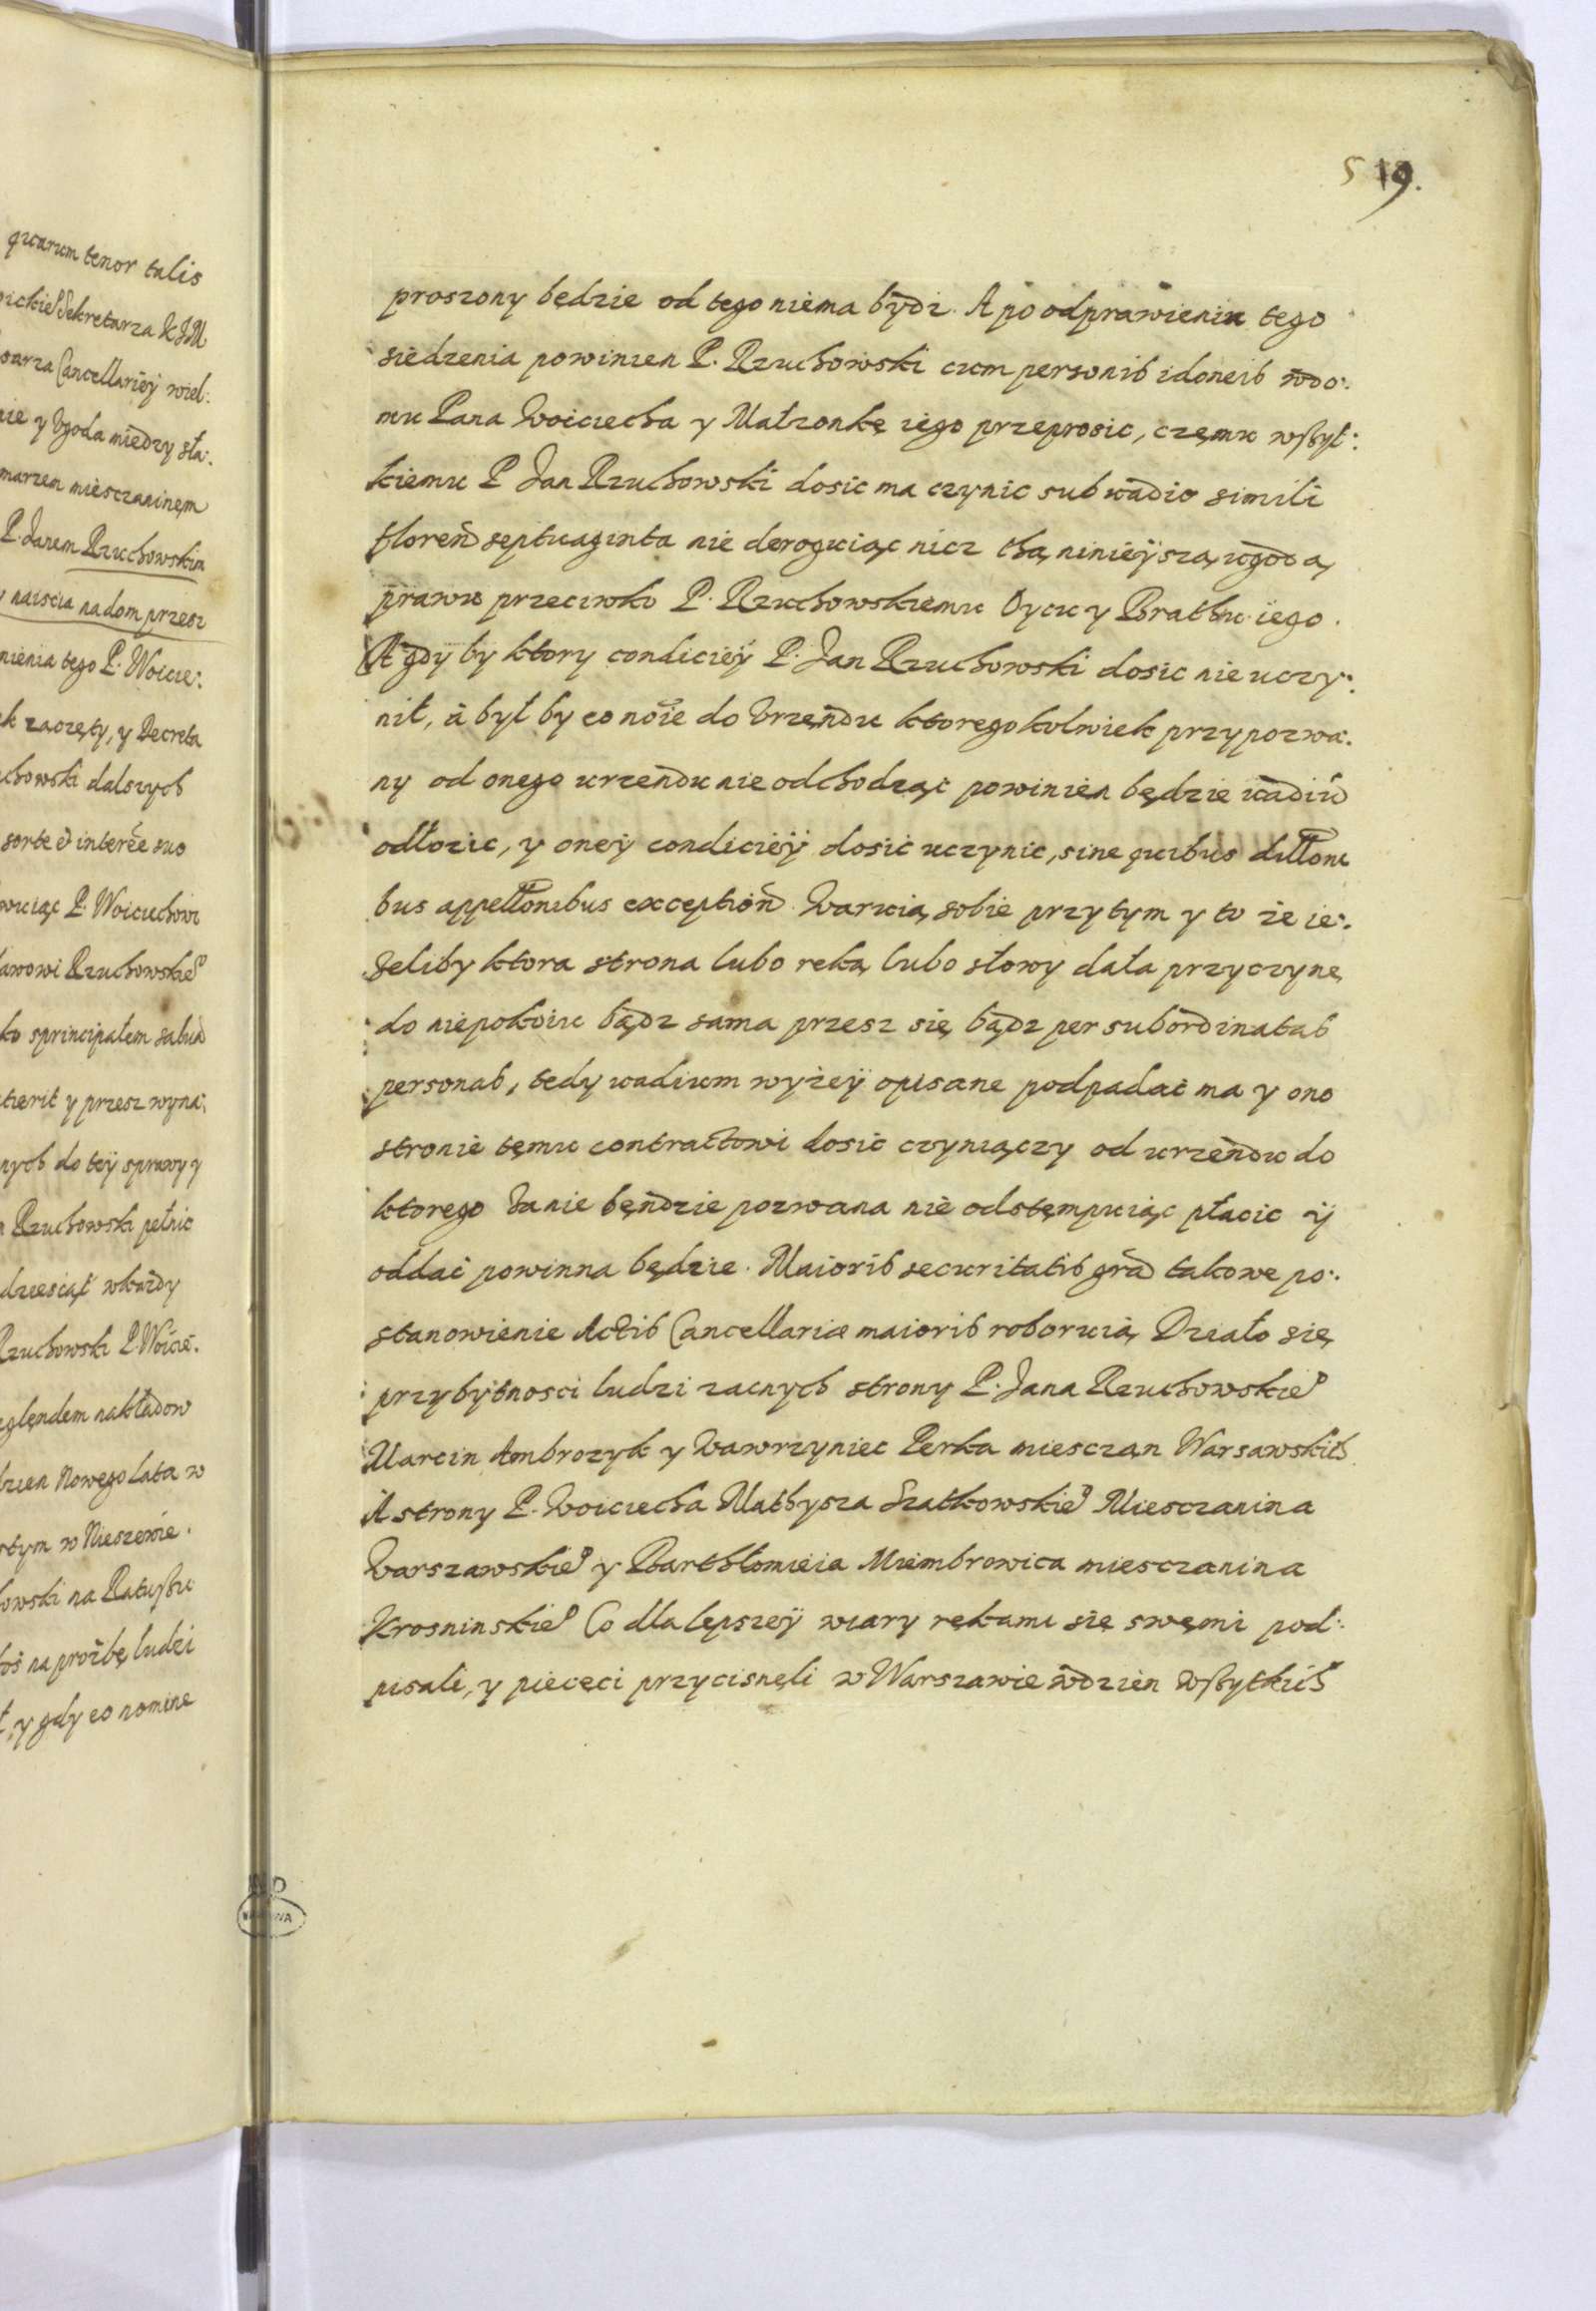 quarum tenor talis
ickie⁰ Sekretarza K J M
oarza Cancellariey wiel:
nie y Vgoda miedzy sła:
marzem miesczaninem
P. Janem Rzuchowskim
naiscia na dom przesz
nienia tego P. Woicie:
k zaczęty, y Decreta
chowski dalszych
sorte et interẽe suo
wuiąc P. Woiciechowi
awowi Rzuchowskie⁰
ko sprincipałem
y przesz wyna:
nych do tey sprawy y
Rzuchowski pełnic
dziesiąt wkażdy
Rzuchowski P. Woicie.
zglęndem nakładow
dzien Nowego Lata w
stym w Nieszenie.
owski na Ratuszu
na prożbę ludzi
y gdy eo nomine
5 19.
proszony będzie od tego niema bydz. A po odprawieniu tego
siedzenia powinien P. Rzuchowski cum personis idoneis wdo:
mu Pana Woiciecha y Małzonkę iego przeprosic, częmu wszyt:
kiemu P Jan Rzuchowski dosic ma czynic sub vadio simili
floren septuaginta nie deroguiąc nicz thą ninieyszą ugodą
prawu przeciwko P. Rzuchowskiemu Oycu y Brathu iego.
A gdy by ktory condiciey P. Jan Rzuchowski dosic nie uczy:
nił, a był by eo noĩe do Vrzendu ktoregokolwiek przypozwa:
ny od onego urzendu nie odchodząc powinien będzie vadiũ
odłozic, y oney condiciey dosic uczynic, sine quibus dillone
bus appellonibus exception. Waruią sobie przytym y to że ie:
żeliby ktora strona lubo reką lubo słowy dała przyczyne
do niepokoiu bądz sama przesz się bądz per subordinatas
personas, tedy vadium wyżey opisane podpadać ma y ono
stronie tęmu contractowi dosic czyniączy od urzendu do
ktorego Janie bęndzie pozwana nie odstęmpuiąc płacic y
oddać powinna będzie. Maioris securitatis grã takowe po:
stanowienie Actis Cancellariæ maioris roboruią Działo się
przybytnosci ludzi zacnych strony P. Jana Rzuchowskie⁰
Marcin Ambrozyk y Wawrzyniec Perka miesczan Warsawskich
A strony P. Woiciecha Mathysza Szatkowskie⁰ Miesczanina
Warszawskie⁰ y Barthłomieia Miembrowica miesczanina
Krosninskie⁰ Co dla lepszey wiary rękami się swęmi pod:
pisali, y pieczęci przycisnęli w Warszawie wdzien wszytkich